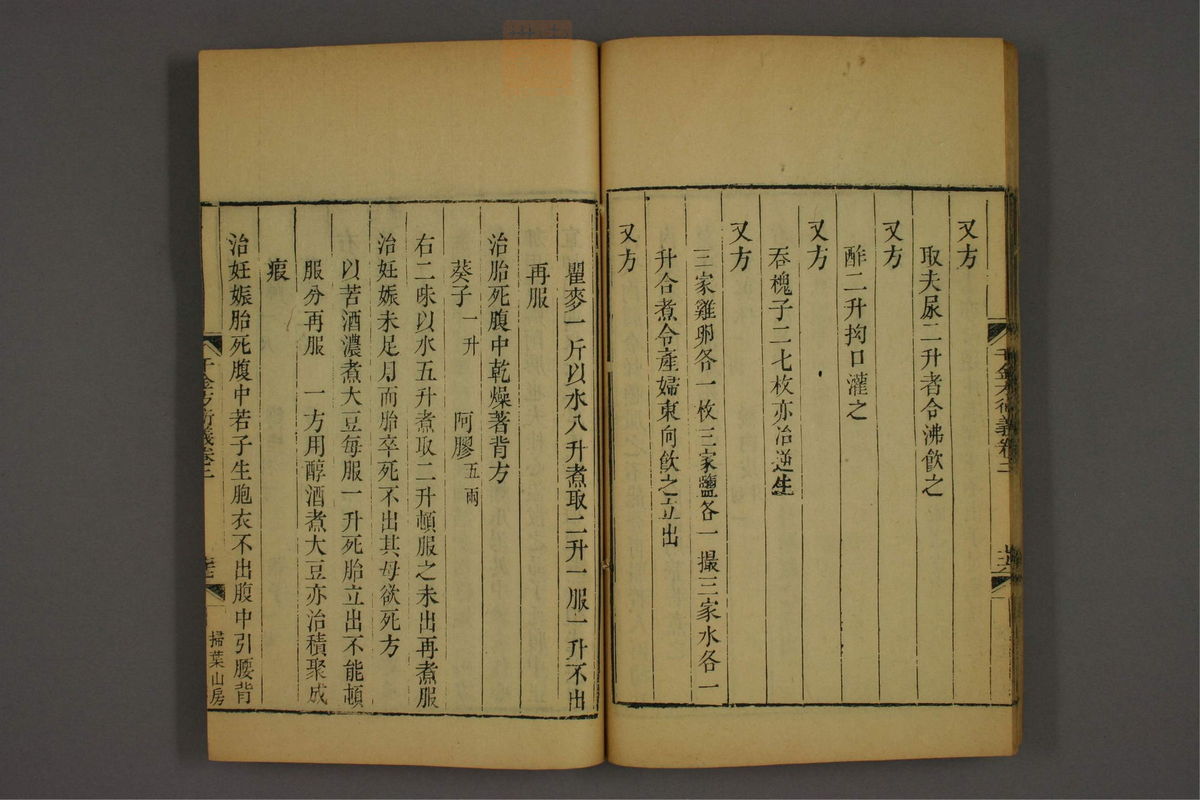 又方
取夫尿二升者合沸飮之
又方
酢二升拘口灌之
又方
吞槐子二七枚亦治逆生
又方
三家雞卵各一枚三家鹽各一撮三家水各一
升合煮令產婦東向飮之立出
又方
瞿麥一斤以水八升煮取二升一服一升不出
再服
治胎死腹中乾燥著背方
葵子一升　阿膠五兩
右二味以水五升煮取二升頓服之未出再煮服
治妊娠未足月而胎卒死不出其母欲死方
以苦酒濃煮大豆每服一升死胎立出不能頓
服分再服　一方用醇酒煮大豆亦治積聚成
瘕
治妊娠胎死腹中若子生胞衣不出腹中引腰背
千金方衍義卷二
掃葉山房